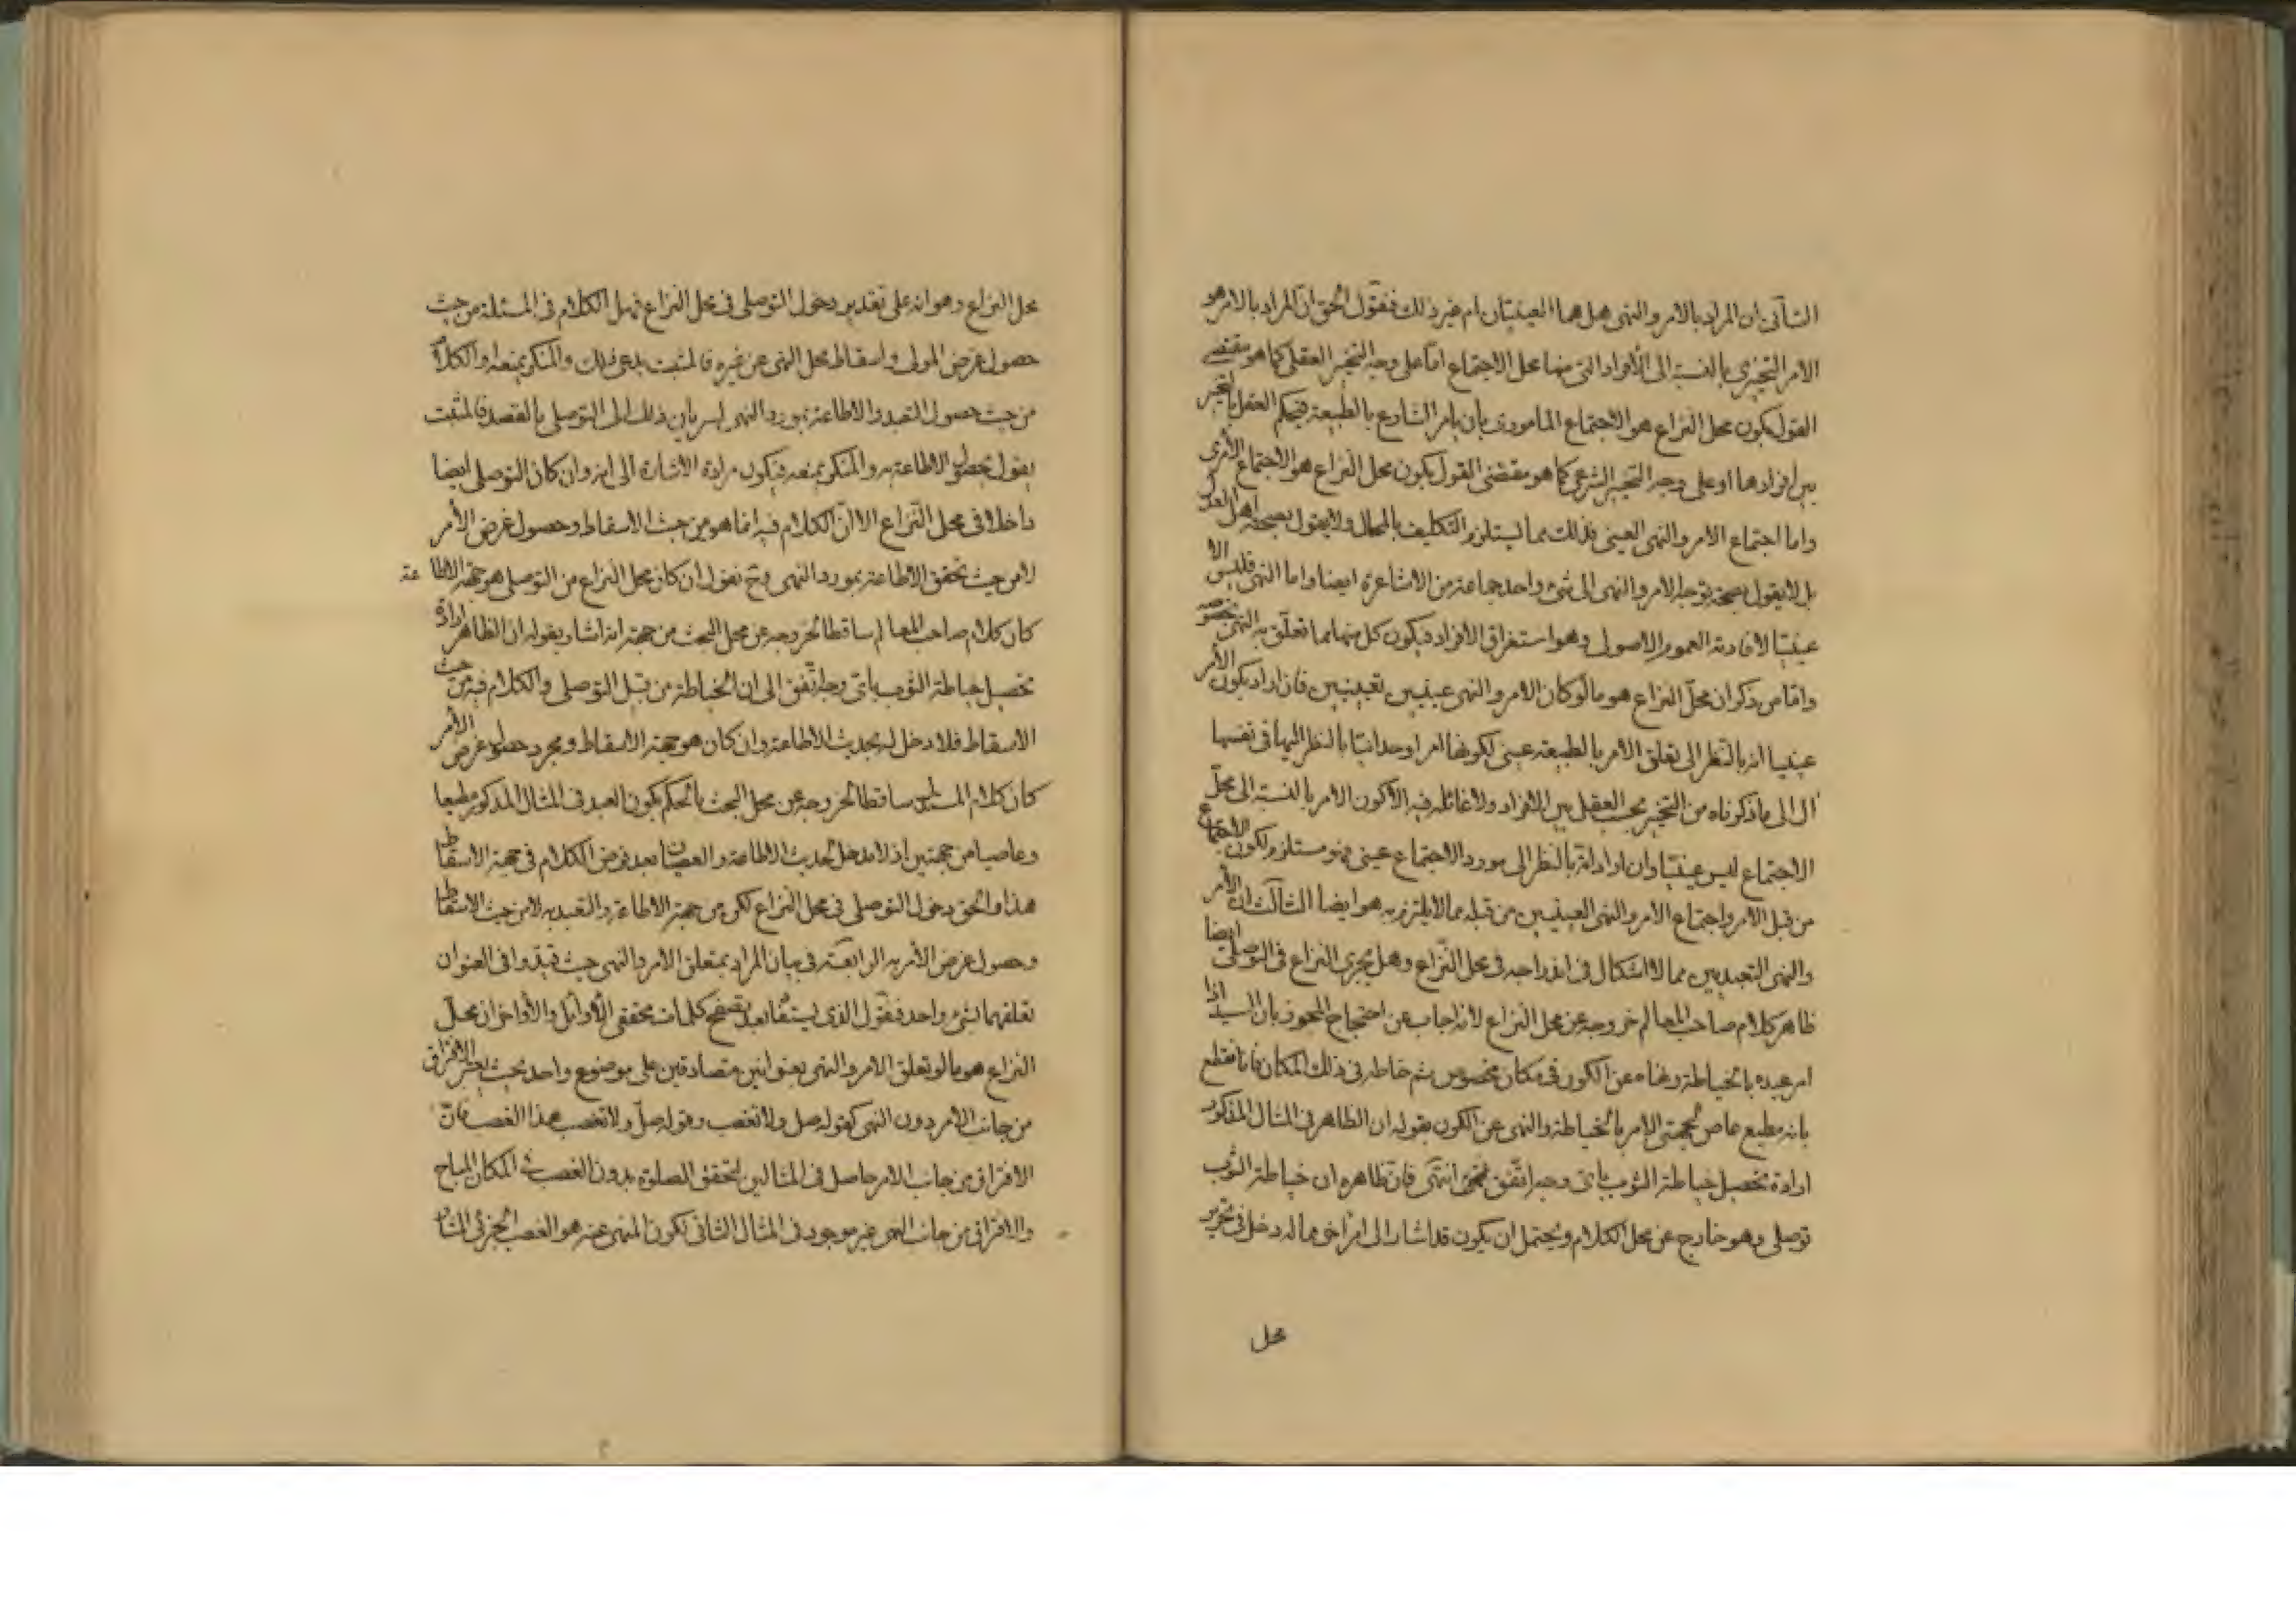 الثانى ان المراد بالامر والنهى هل هما العينيتان ام غير ذلك فنقول الحق ان المراد بالامر هو
الامر التخييرى بالنسبة الى الأفراد التى منها محل الاجتماع اما على وجه التخيير العقلى كما هو مقتضى
القول بكون محل النزاع هو الاجتماع المامورى بان يامر الشارع بالطبيعة فيحكم العقل بالتخيير
بين افرادها او على وجه التخيير الشرعى كما هو مقتضى القول بكون محل النزاع هو الاجتماع الأمرى
واما اجتماع الامر والنهى العينى فذلك مما يستلزم التكليف بالمحال ولا يقول بصحته اهل العدل
بل لا يقول بصحة توجه الامر والنهى الى شئ واحد جماعة من الاشاعرة ايضا واما النهى فليس الا
عينيا لافادته العموم الاصولى وهو استغراق الافراد فيكون كل منها مما تعلق به النهى بخصوصه
واما من ذكر ان محل النزاع هو ما لو كان الامر والنهى عينيين تعيينيين فان اراد بكون الأمر
عينيا انه بالنظر الى تعلق الامر بالطبيعة عينى لكونها امرا وحدانيا بالنظر اليها فى نفسها
ال الى ما ذكرناه من التخيير بحسب العقل بين الافراد ولا غائلة فيه الا كون الامر بالنسبة الى محل
الاجتماع ليس عينيا وان اراد انه بالنظر الى مورد الاجتماع عينى فهو مستلزم لكون الاجتماع
من قبل الامر واجتماع الامر والنهى العينيين من قبله مما لا يلتزم به هو ايضا الثالث ان الأمر
والنهى التعبديين مما لا اشكال فى اندراجه فى محل النزاع وهل يجرى النزاع فى التوصلى ايضا
ظاهر كلام صاحب المعالم خروجه عن محل النزاع لانه اجاب عن احتجاج المجوز بان السيد اذا
امر عبده بالخياطة ونهاه عن الكون فى مكان مخصوص ثم خاطه فى ذلك المكان فانا نقطع
بانه مطيع عاص لجهتى الامر بالخياطة والنهى عن الكون بقوله ان الظاهر فى المثال المذكور
ارادة تحصيل خياطة الثوب باى وجه اتفق انتهى فان ظاهره ان خياطة الثوب
توصلى وهو خارج عن محل الكلام ويحتمل ان يكون قد اشار الى امر اخر مما له دخل فى تحرير
محل
محل النزاع وهو انه على تقدير دخول التوصلى فى محل النزاع فهل الكلام فى المسئلة من حيث
حصول غرض المولى واسقاط محل النهى عن غيره فالمثبت يدعى ذلك والمنكر يمنعه او الكلام
من حيث حصول التعبد والاطاعة بمورد النهى لسريان ذلك الى التوصلى بالقصد فالمثبت
يقول بحصول الاطاعة به والمنكر يمنعه فيكون مراده الاشارة الى انه وان كان التوصلى ايضا
داخلا فى محل النزاع الا ان الكلام فيه انما هو من حيث الاسقاط وحصول غرض الأمر
لا من حيث تحقق الاطاعة بمورد النهى وح نقول ان كان محل النزاع من التوصلى هو جهة الاطاعة
كان كلام صاحب المعالم ساقطا لخروجه عن محل البحث من جهة انه اشار بقوله ان الظاهر ارادة
تحصيل خياطة الثوب باى وجه اتفق الى ان الخياطة من قبيل التوصلى والكلام فيه من حيث
الاسقاط فلا دخل له بحديث الاطاعة وان كان هو جهة الاسقاط ومجرد حصول غرض الأمر
كان كلام المستدل ساقطا لخروجه عن محل البحث بالحكم بكون العبد فى المثال المذكور مطيعا
وعاصيا من جهتين اذ لا مدخل لحديث الاطاعة والعصيان بعد فرض الكلام فى جهة الاسقاط
هذا والحق دخول التوصلى فى محل النزاع لكن من جهة الاطاعة والتعبد به لا من حيث الاسقاط
وحصول غرض الأمر به الرابعة فى بيان المراد بمتعلق الامر والنهى حيث قيدوا فى العنوان
تعلقهما بشئ واحد فنقول الذى يستفاد بعد تصفح كلمات محققى الأوائل والأواخر ان محل
النزاع هو ما لو تعلق الامر والنهى بعنوانين متصادقين على موضوع واحد بحيث يعتبر الافتراق
من جانب الامر دون النهى كقوله صل ولا تغصب وقوله صل ولا تغصب هذا الغصب فان
الافتراق من جانب الامر حاصل فى المثالين لتحقق الصلوة بدون الغصب فى المكان المباح
والافتراق من جانب النهى غير موجود فى المثال الثانى لكون المنهى عنه هو الغصب الجزئى